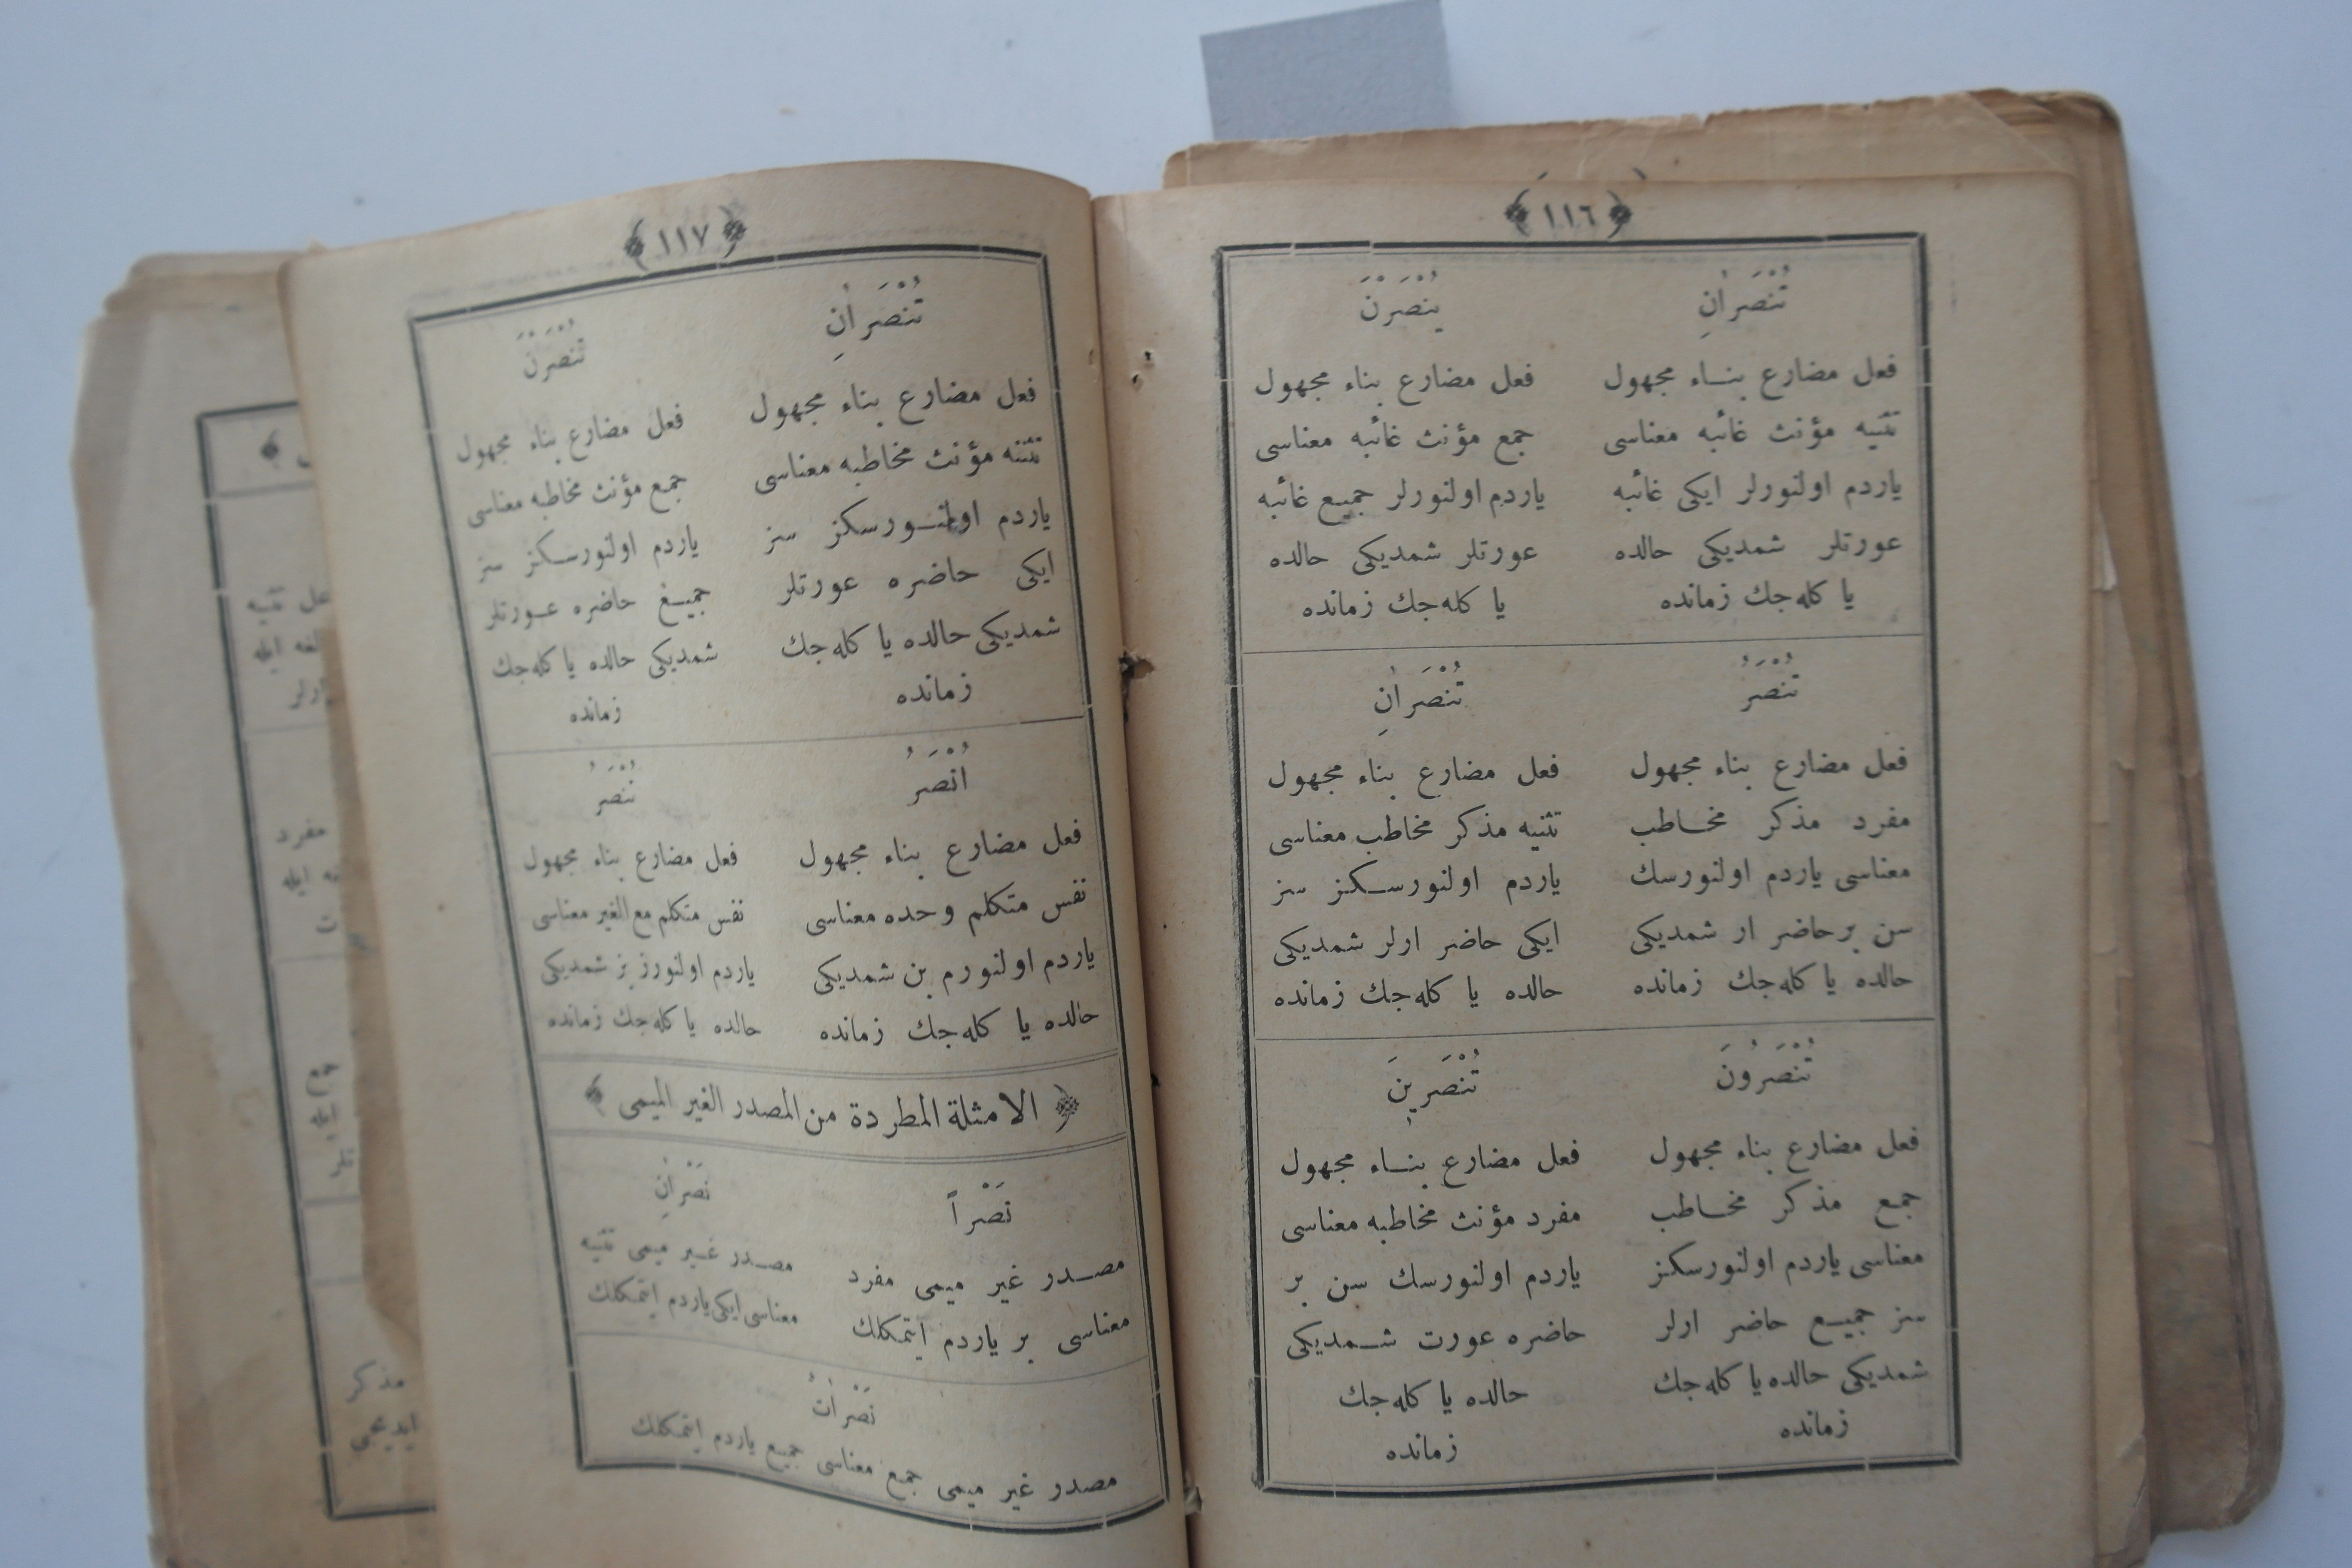 ﴿ ١١٦ ﴾
تُنْصَرَانِ
فعل مضارع بناء مجهول
تثنيه مؤنث غائبه معناسى
ياردم اولنورلر ايكى غائبه
عورتلر شمديكى حالده
يا كله جك زمانده
يُنْصَرْنَ
فعل مضارع بناء مجهول
جمع مؤنث غائبه معناسى
ياردم اولنورلر جميع غائبه
عورتلر شمديكى حالده
يا كله جك زمانده
تُنْصَرُ
فعل مضارع بناء مجهول
مفرد مذكر مخاطب
معناسى ياردم اولنورسك
سن بر حاضر ار شمديكى
حالده يا كله جك زمانده
تُنْصَرَانِ
فعل مضارع بناء مجهول
تثنيه مذكر مخاطب معناسى
ياردم اولنورسكز سز
ايكى حاضر ارلر شمديكى
حالده يا كله جك زمانده
تُنْصَرُونَ
فعل مضارع بناء مجهول
جمع مذكر مخاطب
معناسى ياردم اولنورسكز
سز جميع حاضر ارلر
شمديكى حالده يا كله جك
زمانده
تُنْصَرِينَ
فعل مضارع بناء مجهول
مفرد مؤنث مخاطبه معناسى
ياردم اولنورسك سن بر
حاضره عورت شمديكى
حالده يا كله جك
زمانده
﴿ ١١٧ ﴾
تُنْصَرَانِ
فعل مضارع بناء مجهول
تثنيه مؤنث مخاطبه معناسى
ياردم اولنورسكز سز
ايكى حاضره عورتلر
شمديكى حالده يا كله جك
زمانده
تُنْصَرْنَ
فعل مضارع بناء مجهول
جمع مؤنث مخاطبه معناسى
ياردم اولنورسكز سز
جميع حاضره عورتلر
شمديكى حالده يا كله جك
زمانده
اُنْصَرُ
فعل مضارع بناء مجهول
نفس متكلم وحده معناسى
ياردم اولنورم بن شمديكى
حالده يا كله جك زمانده
نُنْصَرُ
فعل مضارع بناء مجهول
نفس متكلم مع الغير معناسى
ياردم اولنورز بز شمديكى
حالده يا كله جك زمانده
﴿ الامثلة المطردة من المصدر الغير الميمى ﴾
نَصْراً
مصدر غير ميمى مفرد
معناسى بر ياردم ايتمكلك
نَصْرَانِ
مصدر غير ميمى تثنيه
معناسى ايكى ياردم ايتمكلك
نَصْرَاتٌ
مصدر غير ميمى جمع معناسى جميع ياردم ايتمكلك
تثنيه
ايله
مفرد
ايله
جمع
ايله
مذكر